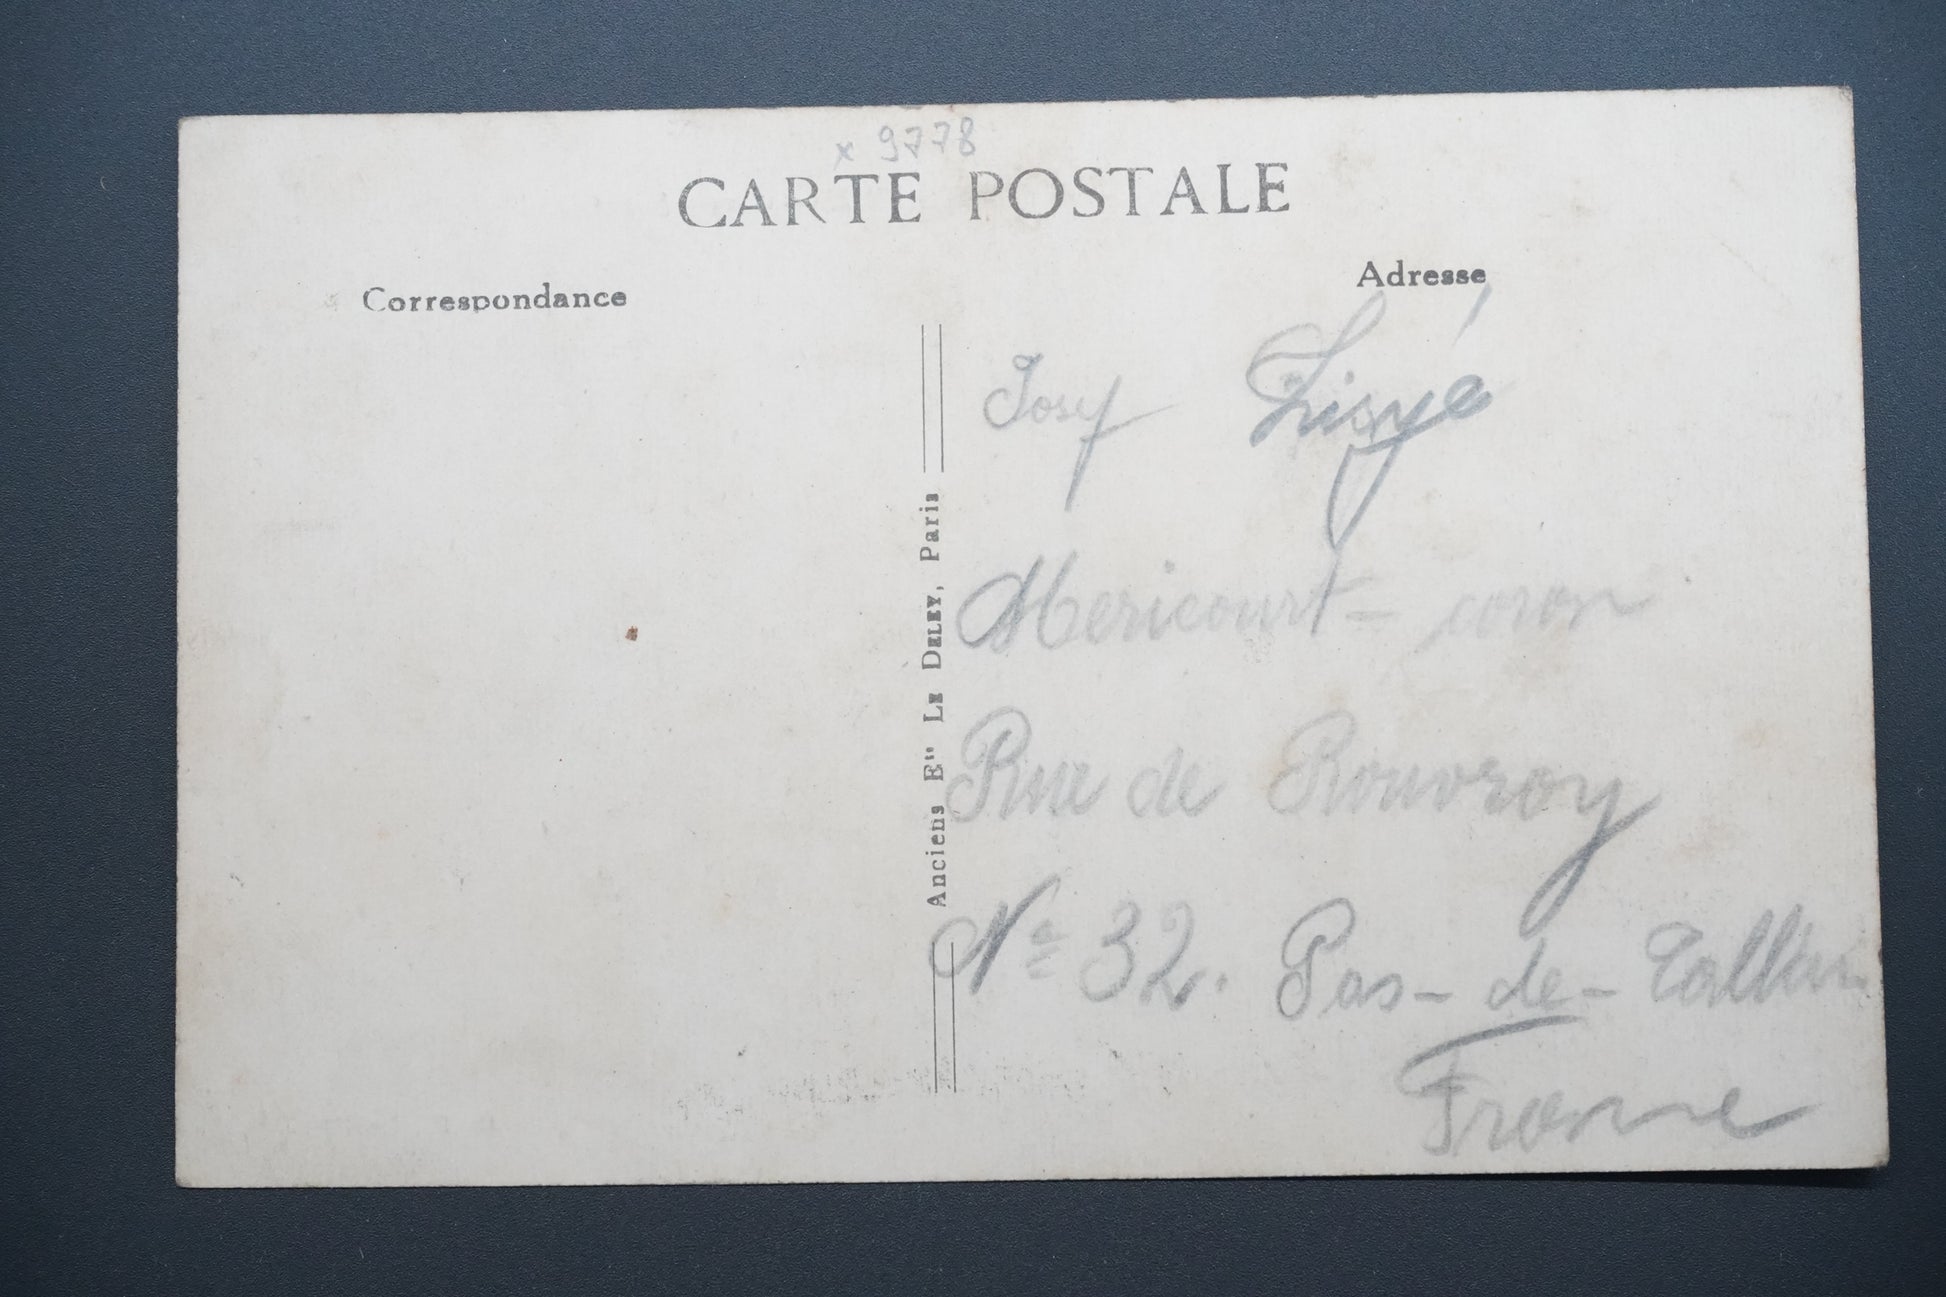 x 9778
CARTE POSTALE
Correspondance
Adresse
Anciens Ets Le Deley, Paris
Josef
Mericourt = coron
Rue de Rouvroy
No 32. Pas-de-
France